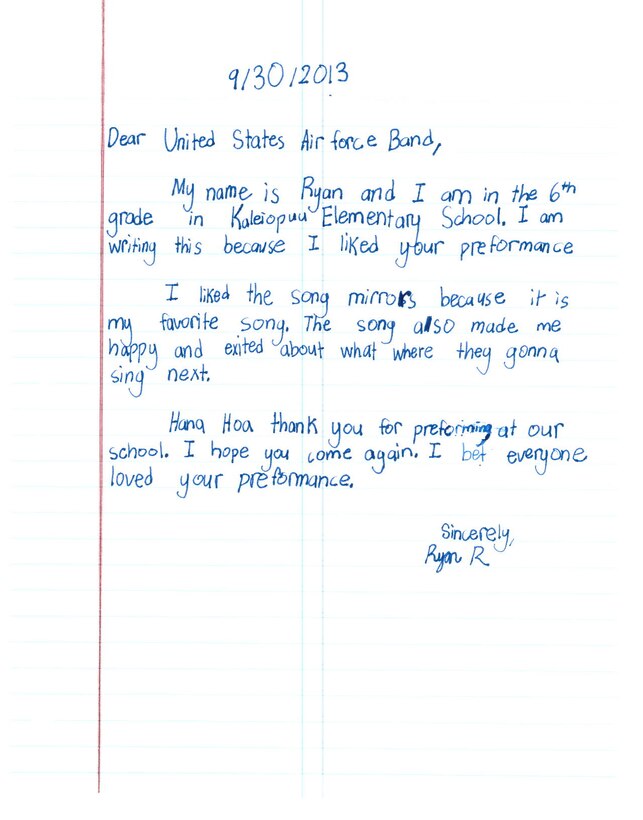 9/30/2013
Dear United States Air force Band,
My name is Ryan and I am in the 6th
grade in Kaleiopuu Elementary School. I am
writing this because I liked your preformance
I liked the song mirrors because it is
my favorite song. The song also made me
happy and exited about what where they gonna
sing next.
Hana Hoa thank you for preforming at our
school. I hope you come again. I bet everyone
loved your preformance.
Sincerely,
Ryan R